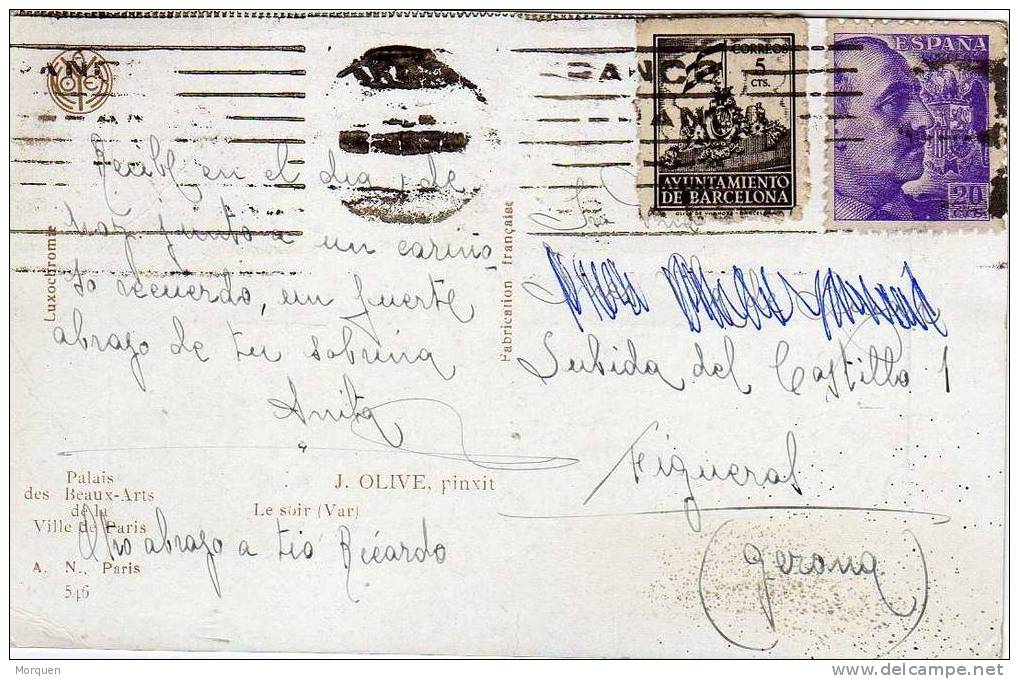 ESPAÑA
CORREOS
5
CTS.
AYUNTAMIENTO
DE BARCELONA
20
Recibe en el dia de
hoy junto a un cariño
so recuerdo, un fuerte
abrazo de tu sobrina
Anita
Otro abrazo a tio Ricardo
Luxochromie
Fabrication française
Palais
des Beaux-Arts
de la
Ville de Paris
A. N., Paris
546
J. OLIVE, pinxit
Le soir (Var)
Subida del Castillo 1
Figueras
Gerona
Morquen
www.delcampe.net